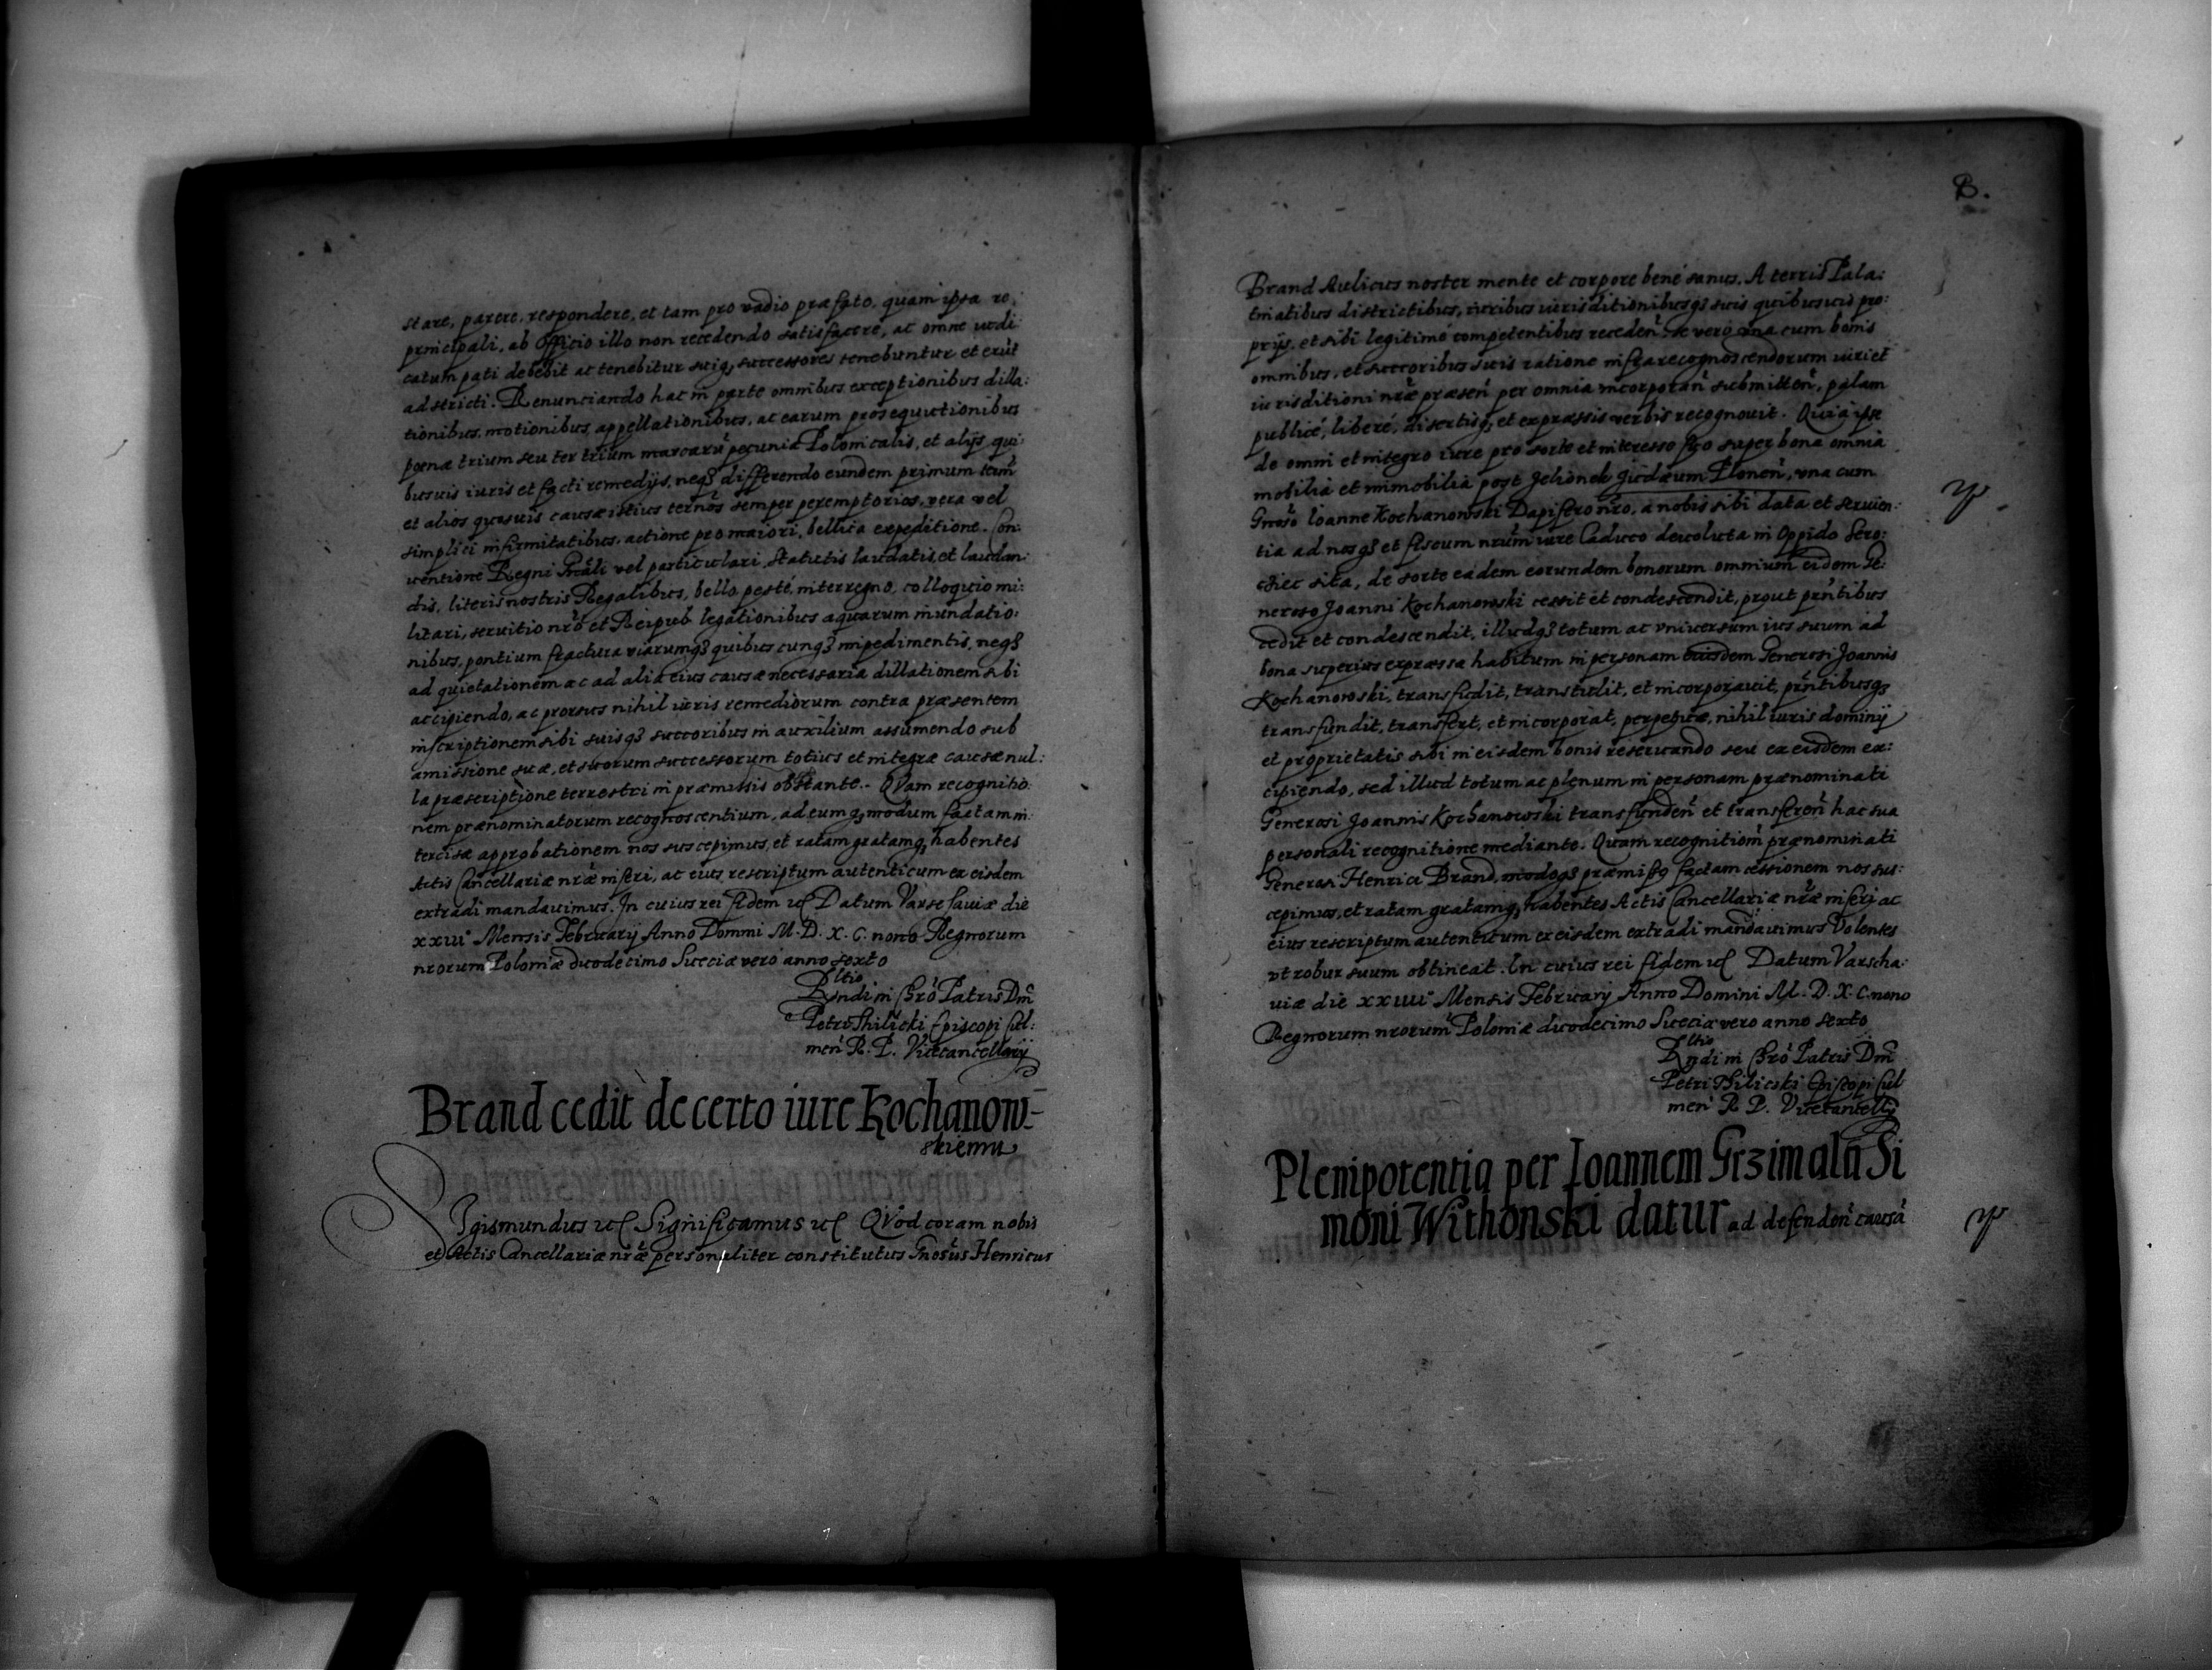 stare, parere, respondere, et tam pro vadio præfato, quam ipsa re
principali, ab Officio illo non recedendo satisfacere, ac omne iudi:
catum pati debebit ac tenebitur suiq3 successores tenebuntur et erūt
adstricti. Renunciando hac in parte omnibus exceptionibus dilla:
tionibus, motionibus, appellationibus, ac earum prosequutionibus
pœnæ trium seu ter trium marcarū pecuniæ Polonicalis, et alijs qui:
busuis iuris et facti remedijs, neq3 differendo eundem primum term̄
et alios quosuis causæ istius ternos semper peremptorios, vera vel
simplici infirmitatibus, actione pro maiori, bellica expeditione. Con:
uentione Regni Gn̄ali vel particulari, statutis laudatis, et laudan:
dis, literis nostris Regalibus, bello, peste, interregno, colloquio mi:
litari, seruitio nr̄o et Reipub legationibus aquarum inundatio:
nibus, pontium fractura viarumq3 quibuscunq3 impedimentis, neq3
ad quietationem ac ad alia eius causæ necessaria dillationem sibi
accipiendo, ac prorsus nihil iuris remediorum contra præsentem
inscriptionem sibi suisq3 succoribus in auxilium assumendo sub
amissione suæ, et suorum successorum totius et integræ causæ nul:
la præscriptione terrestri in præmissis obstante. QVam recognitio:
nem prænominatorum recognoscentium, ad eumq3 modum factam in:
tercisæ approbationem nos suscepimus, et ratam gratamq3 habentes
Actis Cancellariæ nr̄æ inseri, ac eius rescriptum autenticum ex eisdem
extradi mandauimus. In cuius rei fidem etc Datum Varsсhauiæ die
xxiiii° Mensis Februarij Anno Domini M. D. X. C. nono Regnorum
nrorum Poloniæ duodecimo Sueciæ vero anno sexto
Rltio
Rn̄di in Chr̄o Patris Dn̄i
Petri Thilicki Episcopi Cul:
men̄ R. P. Vicecancellarij
Brand cedit de certo iure Kochanow-
skiemu
SIgismundus etc Significamus etc QVod coram nobis
et Actis Cancellariæ nr̄æ personaliter constitutus Gnosus Henricus
8.
Brand Aulicus noster mente et corpore bene sanus. A terris Pala:
tinatibus districtibus, iuribus iurisditionibusq3 suis quibusuis pro:
prijs, et sibi legitime competentibus receden̄, se vero vna cum bonis
omnibus, et succoribus suis ratione infra recognoscendorum iuri et
iurisditioni nr̄æ præsen̄ per omnia incorporan̄ submitten̄, palam
publicé, liberé, disertisq3 et expressis verbis recognouit. Quia ipse
de omni et integro iure pro sorte et interesse suo super bona omnia
mobilia et immobilia post Jelionek Judæum Plonen̄, vna cum
Gnoso Ioanne Kochanowski Dapifero nr̄o, a nobis sibi data et seruien:
tia ad nosq3 et fiscum nrūm iure Caduco deuoluta in Oppido Sero:
cziec sita, de sorte eadem eorundem bonorum omnium eidem Ge:
neroso Joanni Kochanowski cessit et condescendit, prout prn̄tibus
cedit et condescendit, illudq3 totum ac vniuersum ius suum ad
bona superius expræssa habitum in personam eiusdem Generosi Joannis
Kochanowski, transfudit, transtulit, et incorporauit, prn̄tibusq3
transfundit, transfert, et incorporat, perpetuæ, nihil iuris dominij
et proprietatis sibi in eisdem bonis reseruando seu ex eisdem ex:
cipiendo, sed illud totum ac plenum in personam prænominati
Generosi Joannis Kochanowski transfunden̄ et transferen̄ hac sua
personali recognitione mediante. Quam recognitiom̄ prænominati
Generosi Henrici Brand, modoq3 præmisso factam cessionem nos sus:
cepimus, et ratam gratamq3 habentes Actis Cancellariæ nr̄æ inseri ac
eius rescriptum autenticum ex eisdem extradi mandauimus Volentes
vt robur suum obtineat. In cuius rei fidem etc Datum Varscha:
uiæ die xxiiii° Mensis Februarij Anno Domini M. D. X. C. nono
Regnorum nrorum Poloniæ duodecimo Sueciæ vero anno sexto
Rltio
Rn̄di in Chr̄o Patris Dn̄i
Petri Thilicski Episcopi Cul
men̄ R P. Vicecancellij
Plenipotentia per Ioannem Grzimala Si
moni Withonski datur ad defenden̄ causā